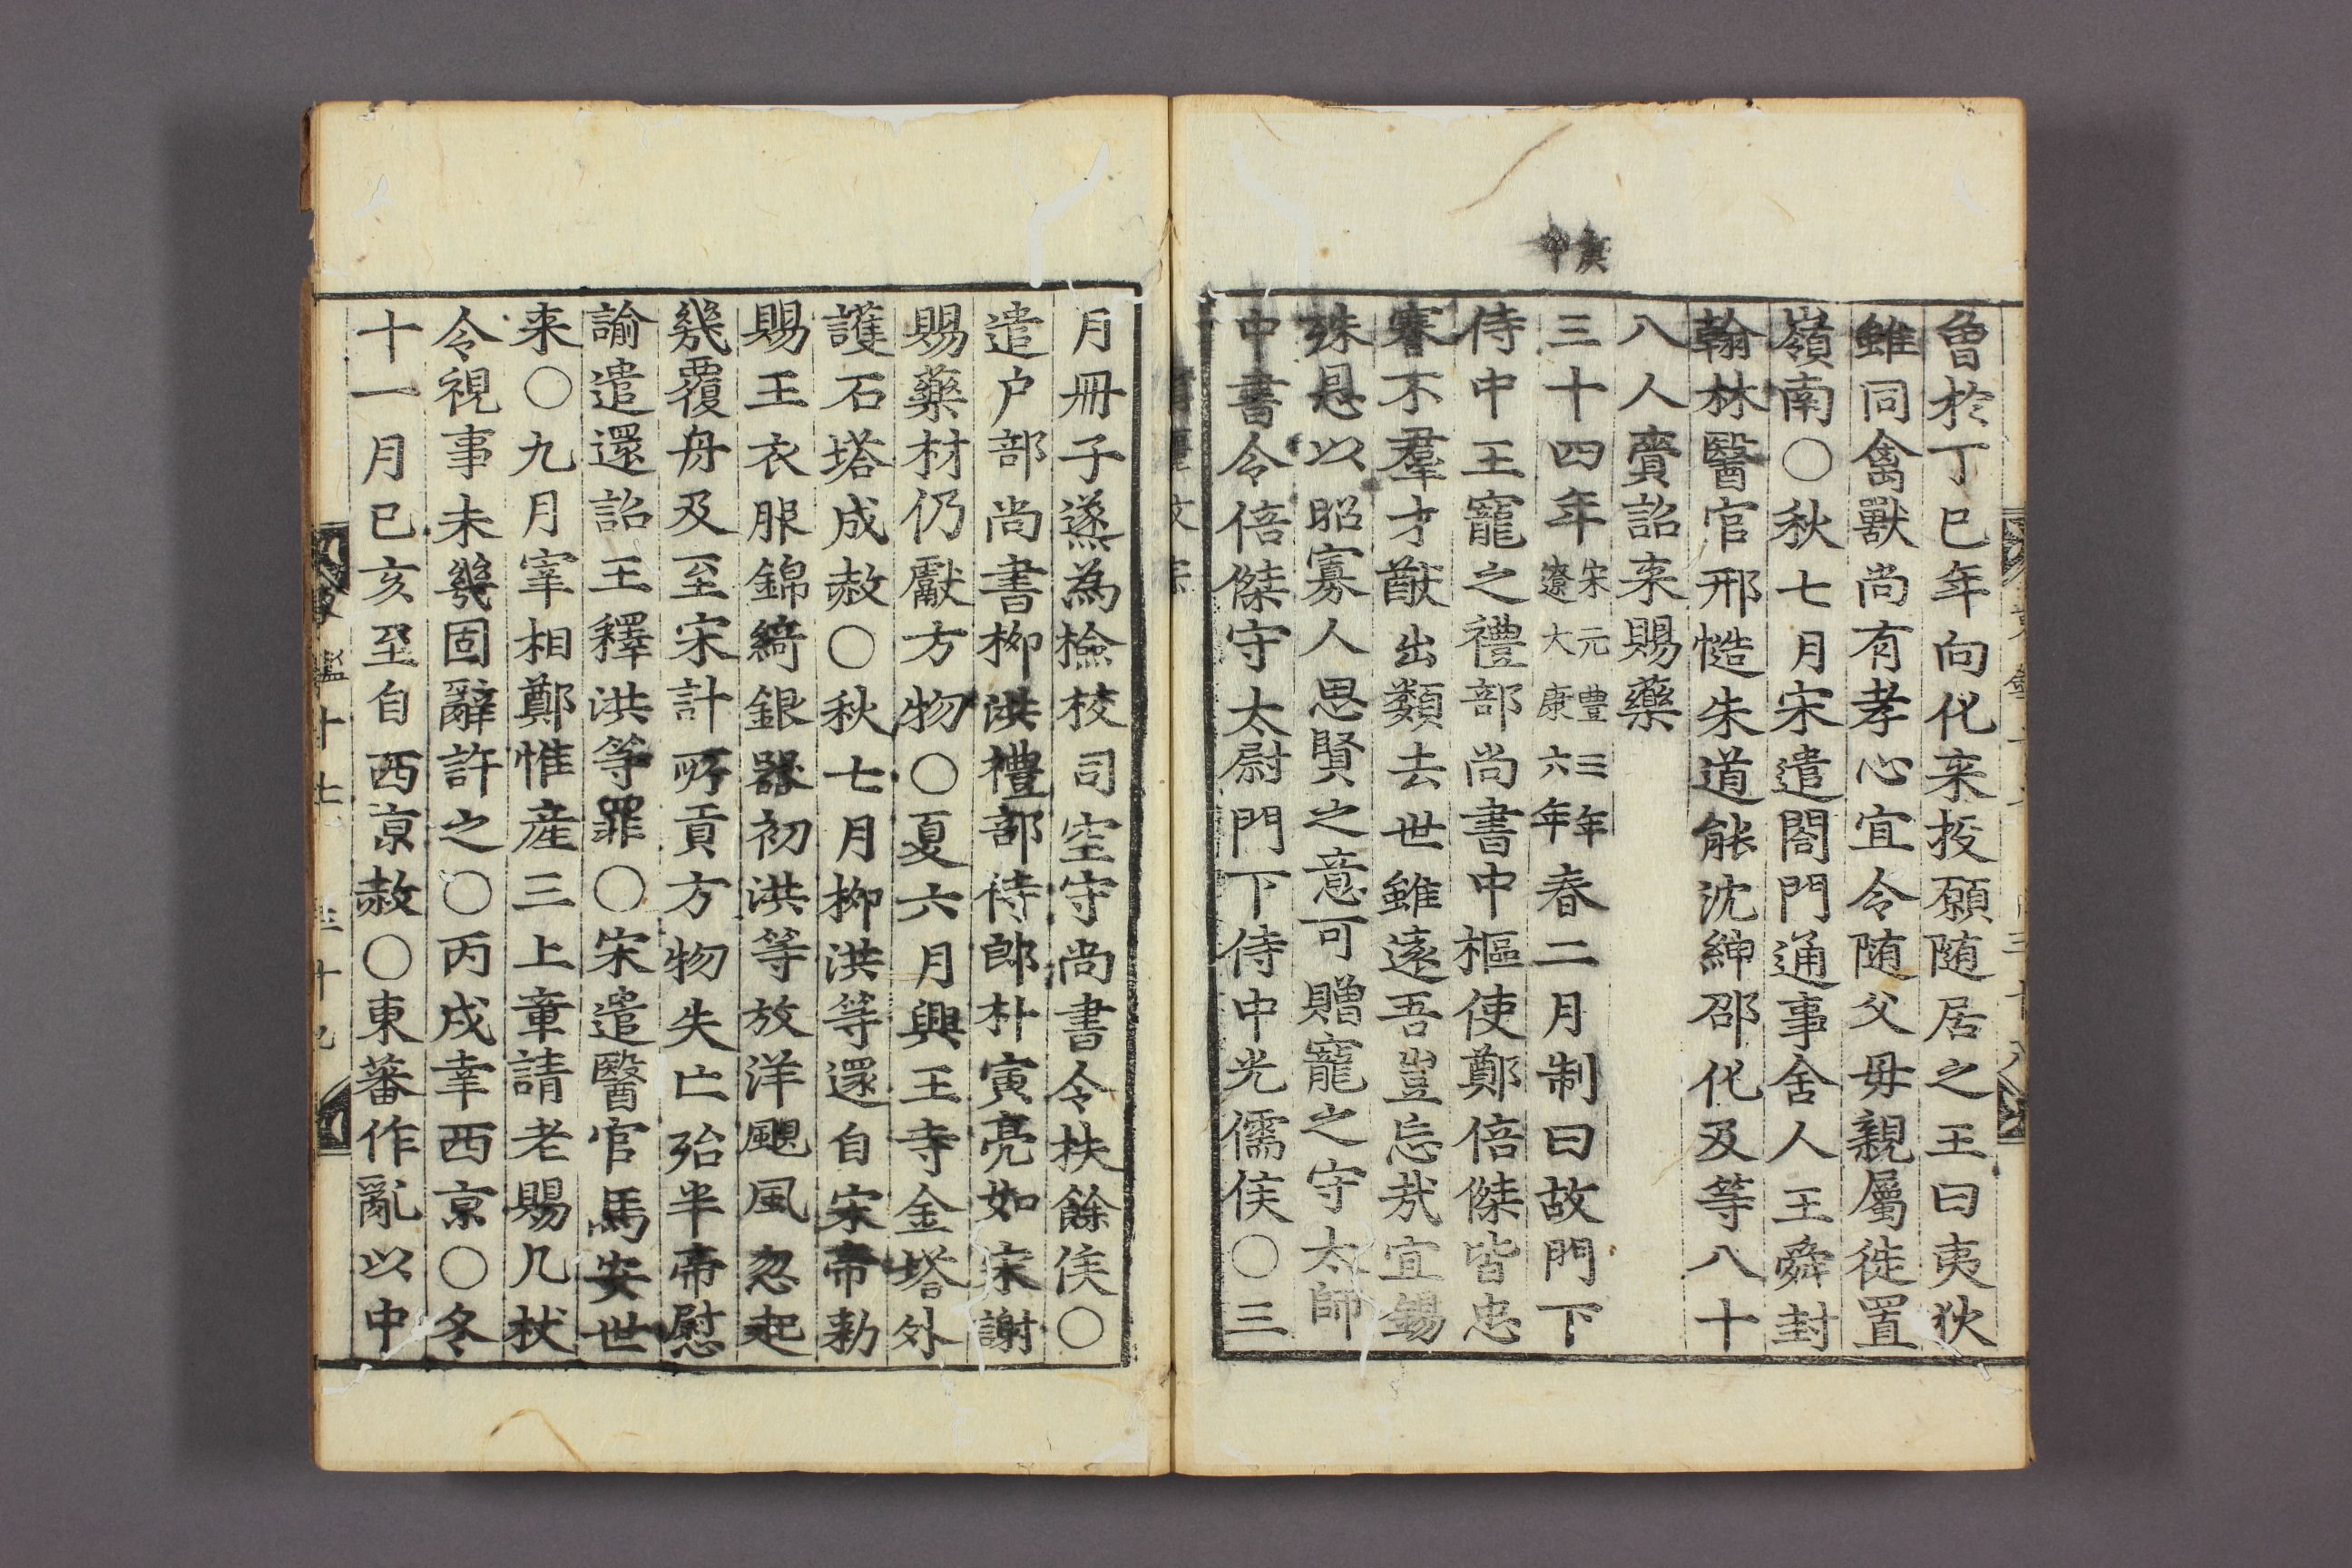 庚申
曾於丁巳年向化来投願随居之王曰夷狄
雖同禽獸尚有孝心宜令随父母親屬徙置
嶺南○秋七月宋遣閤門通事舍人王舜封
翰林醫官邢慥朱道能沈紳邵化及等八十
八人賫詔来賜藥
三十四年宋元豊三年遼大康六年春二月制曰故門下
侍中王寵之禮部尚書中樞使鄭倍傑皆忠
謇不羣才猷出類去世雖遠吾豈忘哉宜錫
殊恩以昭寡人思賢之意可贈寵之守太師
中書令倍傑守太尉門下侍中光儒侯○三
月冊子㷟為檢校司空守尚書令扶餘侯○
遣户部尚書柳洪禮部侍郎朴寅亮如宋謝
賜藥材仍獻方物○夏六月興王寺金塔外
護石塔成赦○秋七月柳洪等還自宋帝勑
賜王衣服錦綺銀器初洪等放洋颶風忽起
幾覆舟及至宋計所貢方物失亡殆半帝慰
諭遣還詔王釋洪等罪○宋遣醫官馬安世
来○九月宰相鄭惟産三上章請老賜几杖
令視事未幾固辭許之○丙戌幸西京○冬
十一月己亥至自西京赦○東蕃作亂以中
鑑十七